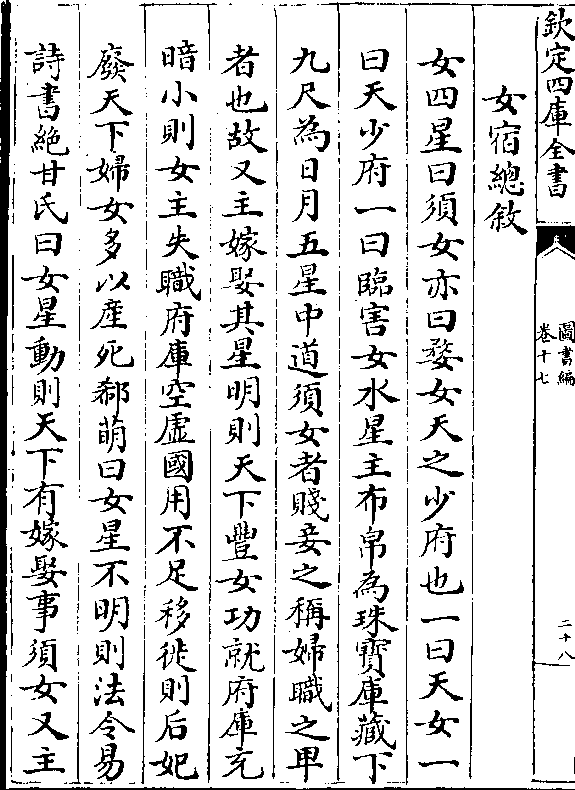 欽定四庫全書
圖書編
卷十七
二十八
女宿總敘
女四星曰須女亦曰婺女天之少府也一曰天女一
曰天少府一曰臨害女水星主布帛為珠寶庫藏下
九尺為日月五星中道須女者賤妾之稱婦職之卑
者也故又主嫁娶其星明則天下豐女功就府庫充
暗小則女主失職府庫空虛國用不足移徙則后妃
廢天下婦女多以産死郗萌曰女星不明則法令易
詩書絶甘氏曰女星動則天下有嫁娶事須女又主